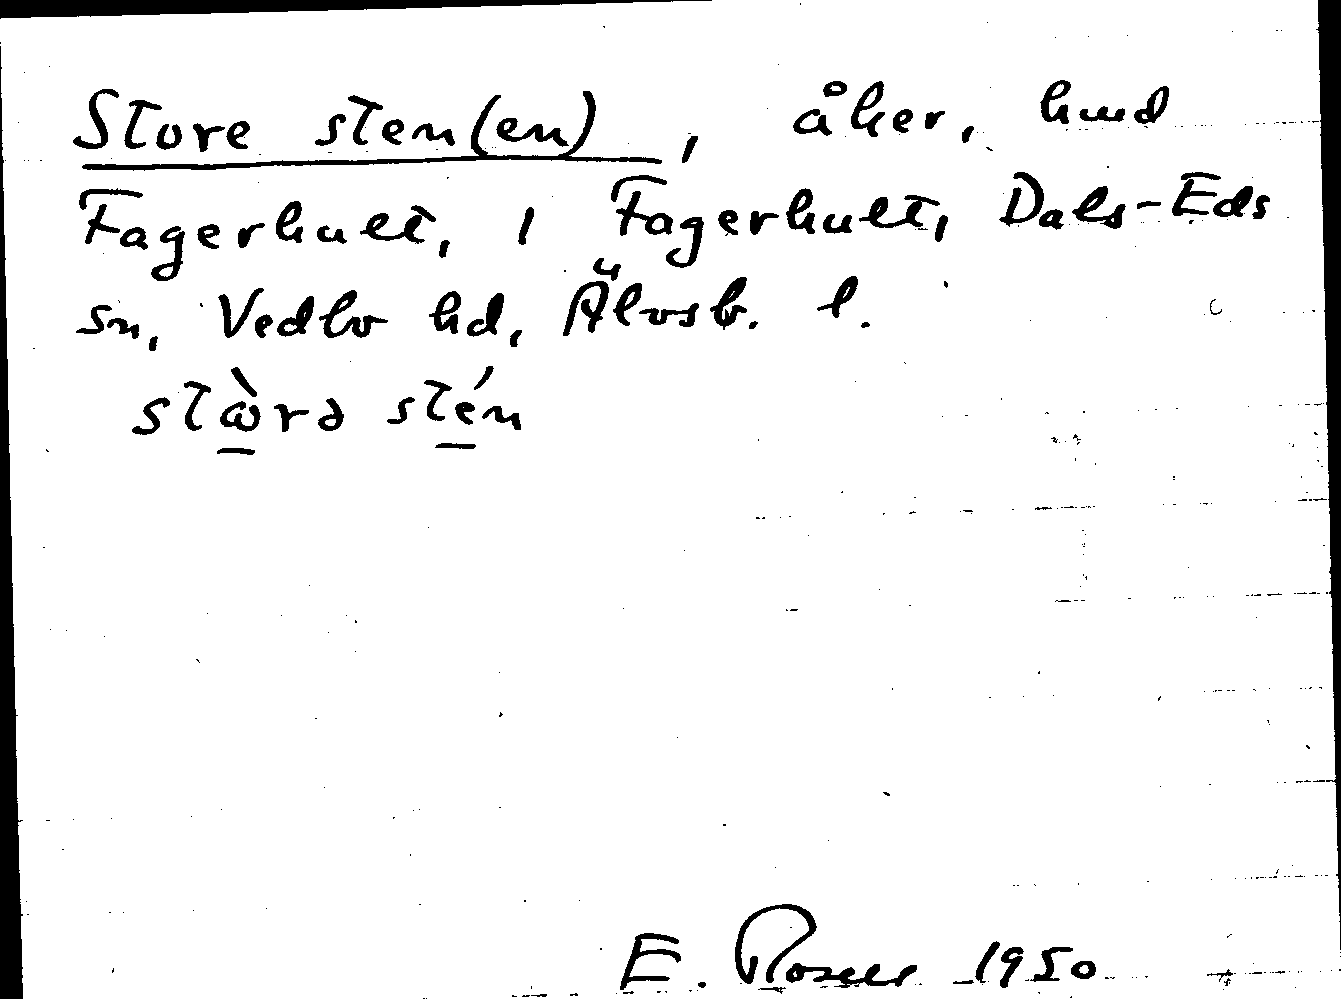 Store sten(en), åker, hmd
Fagerhult, 1 Fagerhult, Dals-Eds
sn, Vedbo hd, Älvsb. l.
stὼrə stén
E. Rosell 1950